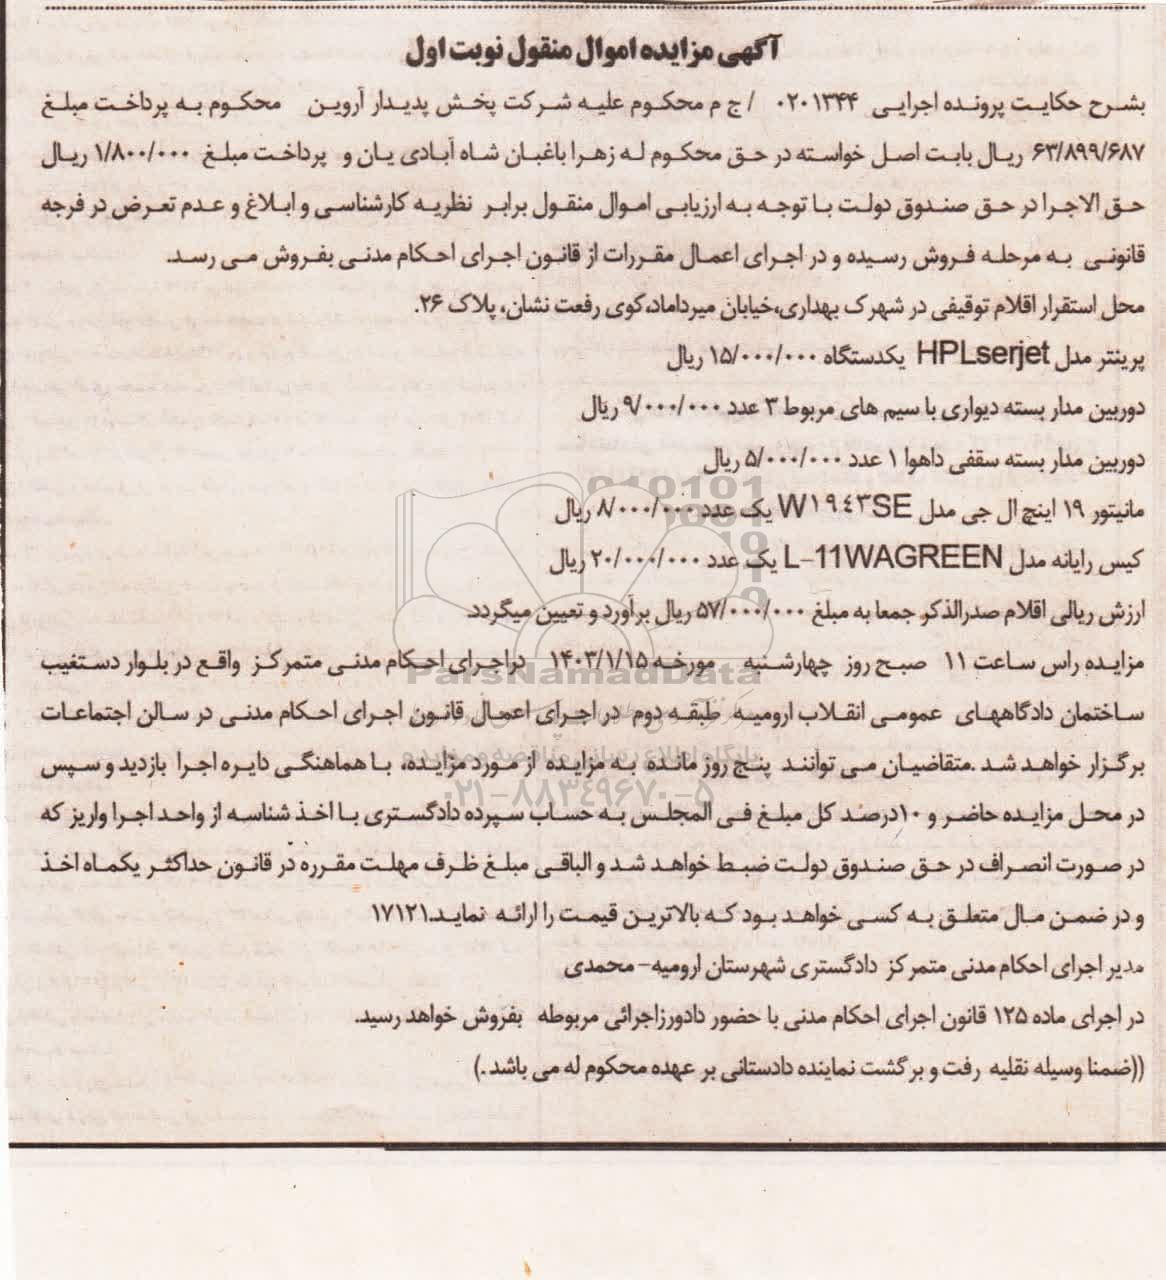 آگهی مزایده اموال منقول نوبت اول
بشرح حکایت پرونده اجرایی ۰۲۰۱۳۴۴ / ج م محکوم علیه شرکت پخش پدیدار آروین محکوم به پرداخت مبلغ
۶۳/۸۹۹/۶۸۷ ریال بابت اصل خواسته در حق محکوم له زهرا باغبان شاه آبادی یان و پرداخت مبلغ ۱/۸۰۰/۰۰۰ ریال
حق الاجرا در حق صندوق دولت با توجه به ارزیابی اموال منقول برابر نظریه کارشناسی و ابلاغ و عدم تعرض در فرجه
قانونی به مرحله فروش رسیده و در اجرای اعمال مقررات از قانون اجرای احکام مدنی بفروش می رسد.
محل استقرار اقلام توقیفی در شهرک بهداری،خیابان میرداماد،کوی رفعت نشان، پلاک ۲۶.
پرینتر مدل HPLserjet یکدستگاه ۱۵/۰۰۰/۰۰۰ ریال
دوربین مدار بسته دیواری با سیم های مربوط ۳ عدد ۹/۰۰۰/۰۰۰ ریال
دوربین مدار بسته سقفی داهوا ۱ عدد ۵/۰۰۰/۰۰۰ ریال
مانیتور ۱۹ اینچ ال جی مدل W۱۹٤۳SE یک عدد ۸/۰۰۰/۰۰۰ ریال
کیس رایانه مدل L-11WAGREEN یک عدد ۲۰/۰۰۰/۰۰۰ ریال
ارزش ریالی اقلام صدرالذکر جمعا به مبلغ ۵۷/۰۰۰/۰۰۰ ریال برآورد و تعیین میگردد.
مزایده راس ساعت ۱۱ صبح روز چهارشنبه مورخه ۱۴۰۳/۱/۱۵ دراجرای احکام مدنی متمرکز واقع در بلوار دستغیب
ساختمان دادگاههای عمومی انقلاب ارومیه طبقه دوم در اجرای اعمال قانون اجرای احکام مدنی در سالن اجتماعات
برگزار خواهد شد .متقاضیان می توانند پنج روز مانده به مزایده از مورد مزایده، با هماهنگی دایره اجرا بازدید و سپس
در محل مزایده حاضر و ۱۰درصد کل مبلغ فی المجلس به حساب سپرده دادگستری با اخذ شناسه از واحد اجرا واریز که
در صورت انصراف در حق صندوق دولت ضبط خواهد شد و الباقی مبلغ ظرف مهلت مقرره در قانون حداکثر یکماه اخذ
و در ضمن مال متعلق به کسی خواهد بود که بالاترین قیمت را ارائه نماید.۱۷۱۲۱
مدیر اجرای احکام مدنی متمرکز دادگستری شهرستان ارومیه- محمدی
در اجرای ماده ۱۲۵ قانون اجرای احکام مدنی با حضور دادورزاجرائی مربوطه بفروش خواهد رسید.
((ضمنا وسیله نقلیه رفت و برگشت نماینده دادستانی بر عهده محکوم له می باشد.)
ParsNamadData
پایگاه اطلاع رسانی مناقصه و مزایده
۰۲۱-۸۸۳۴۹۶۷۰-۵